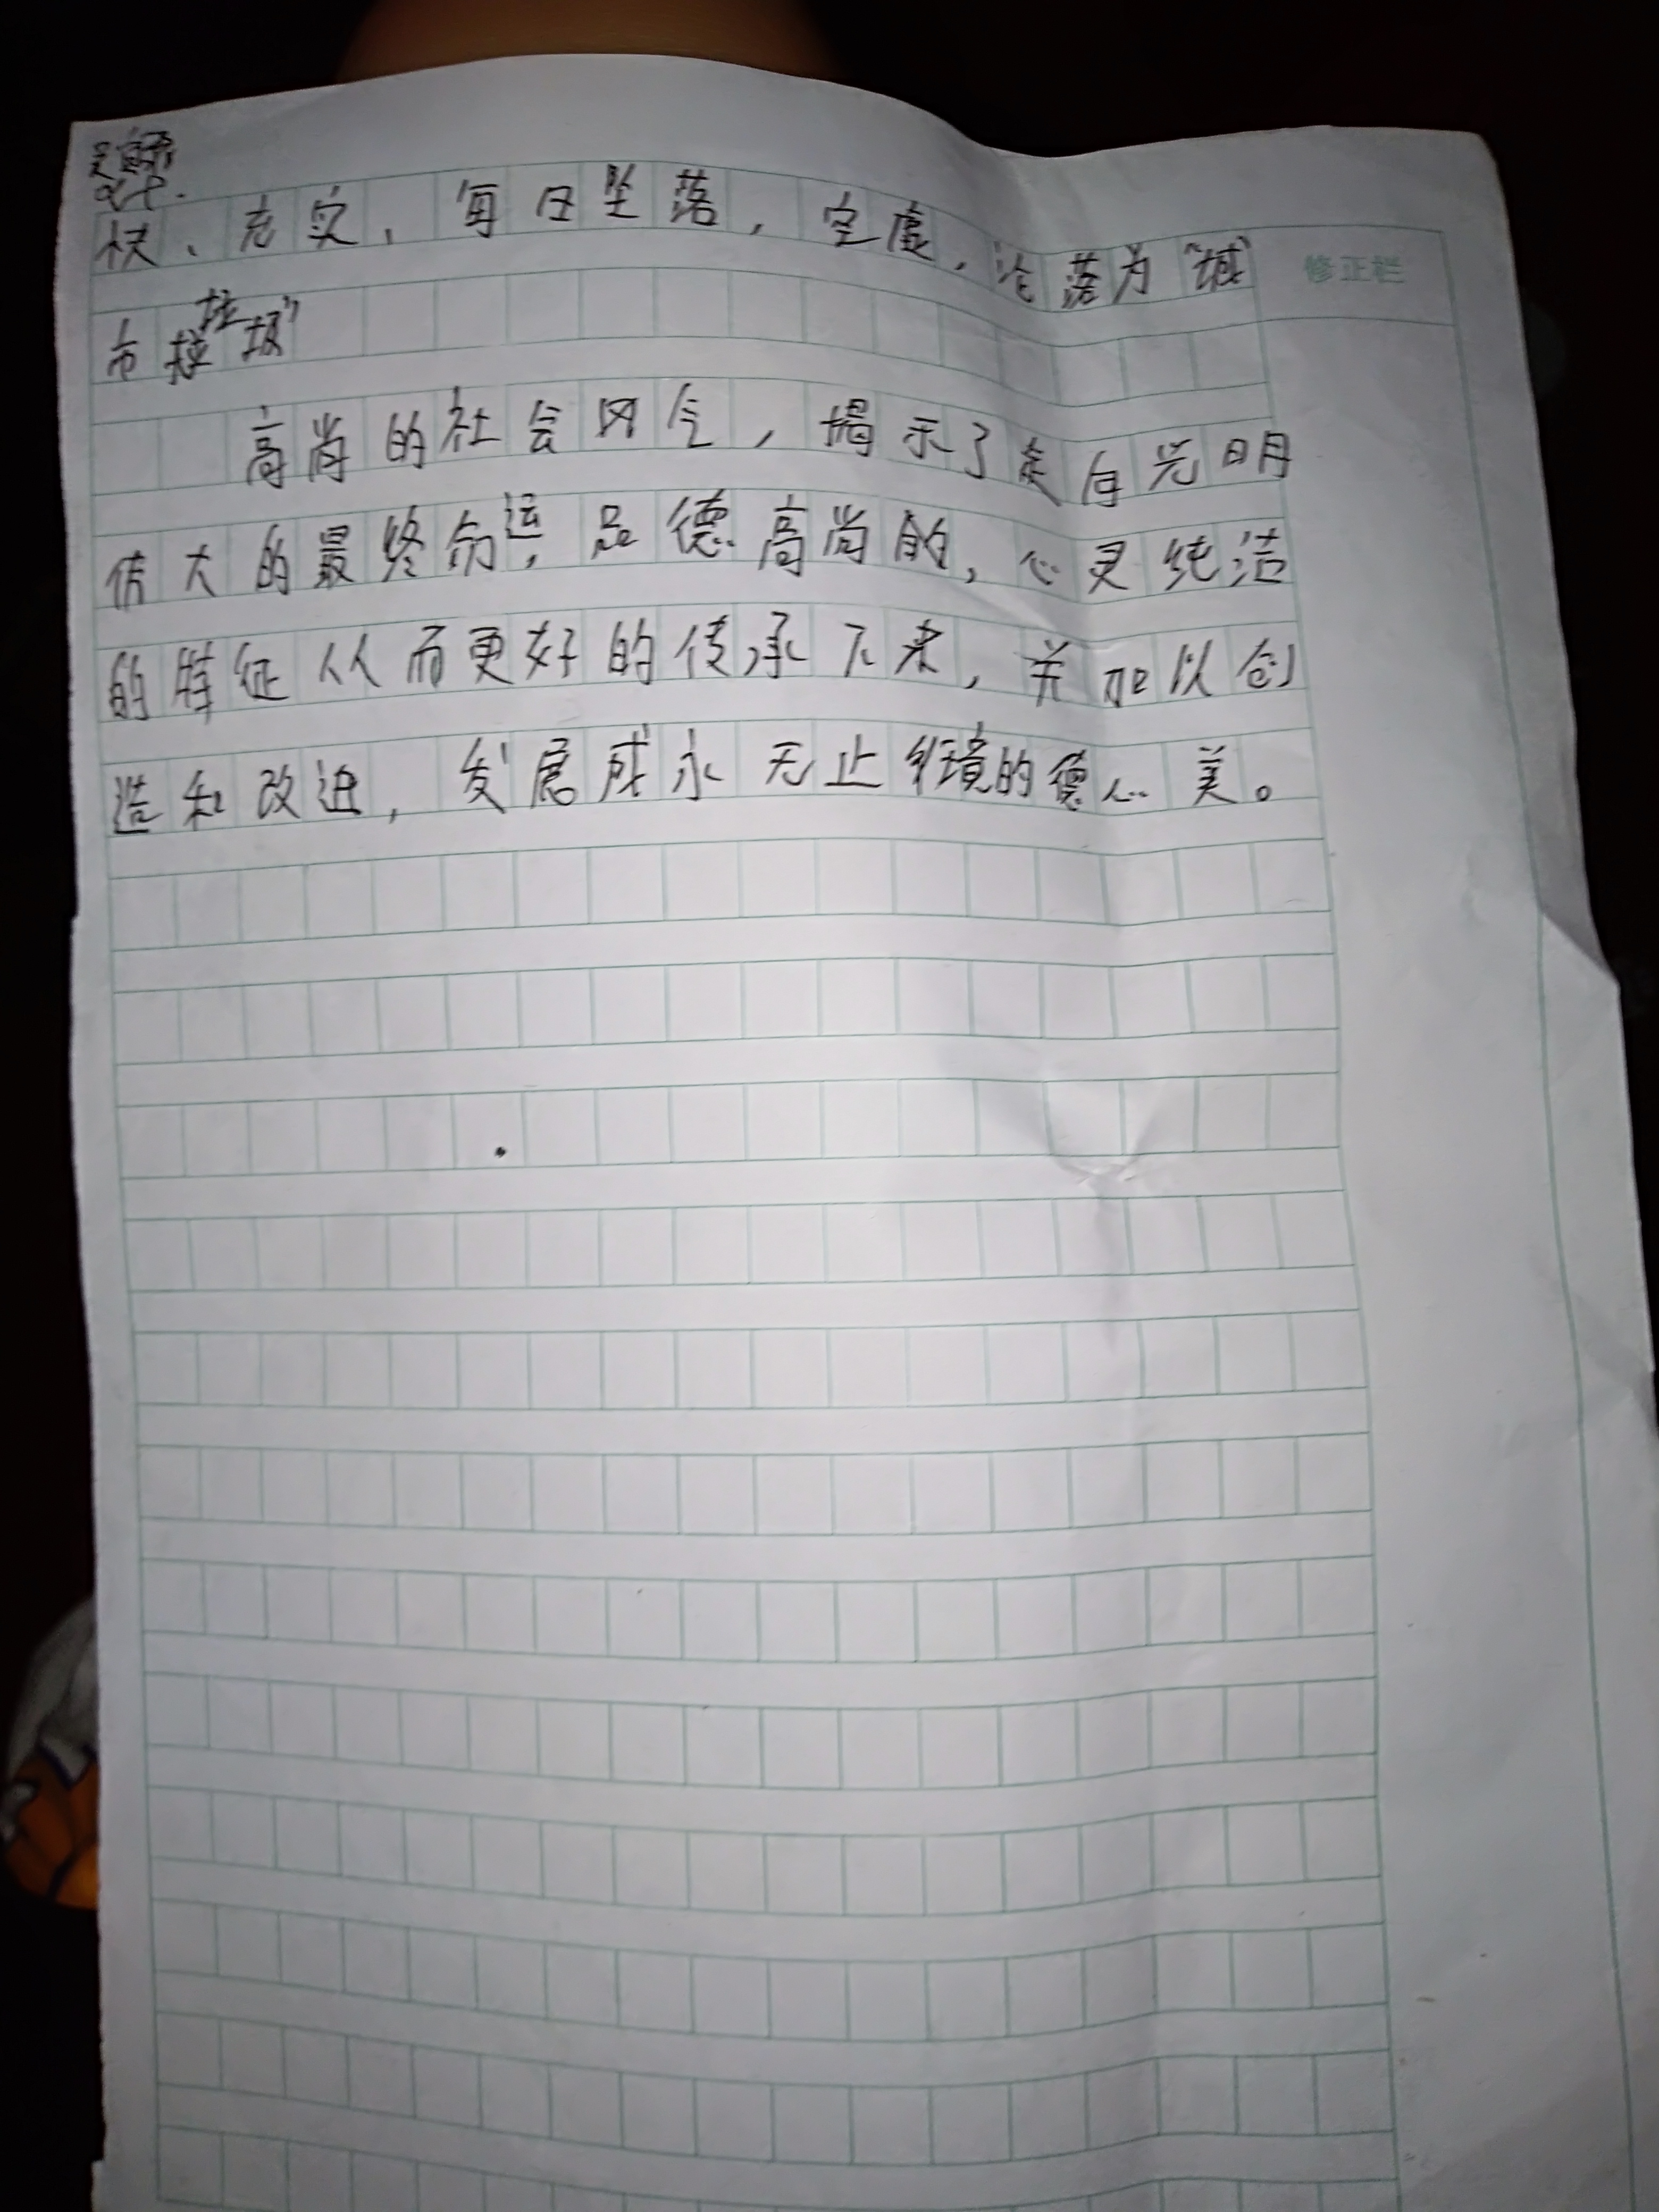 快、充实，每日坠落，空虚，沦落为“城
修正栏
市垃圾”
高尚的社会风气，揭示了走向光明
伟大的最终命运，品德高尚的，心灵纯洁
的特征从而更好的传承下来，并加以创
造和改进，发展成永无止境的德心美。